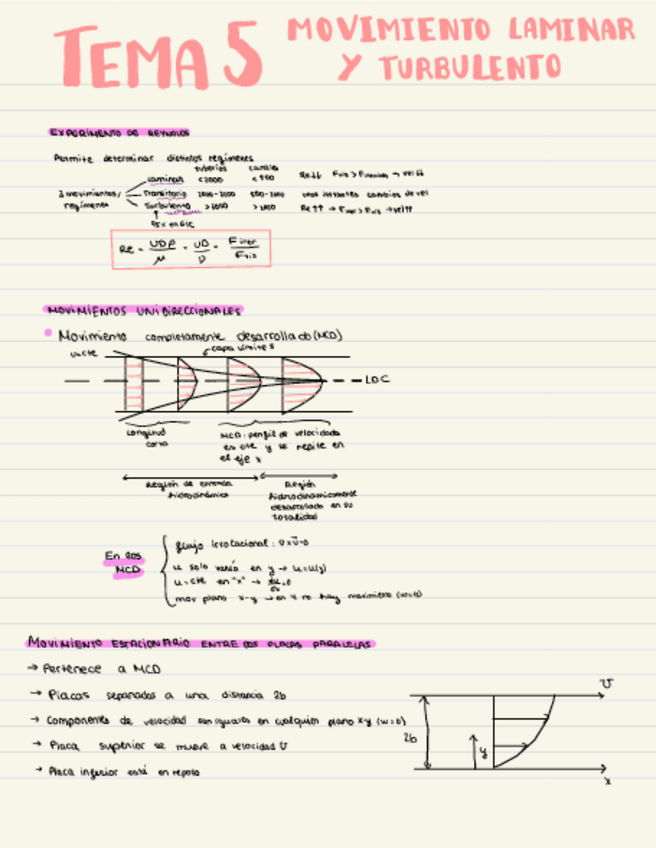 TEMA 5 MOVIMIENTO LAMINAR
Y TURBULENTO
EXPERIMENTO DE REYNOLDS
Permite determinar distintos regímenes
tuberías canales
3 movimientos/
regímenes
Laminar <2000 <500 Re↓↓
Transitorio 2000-4000 500-2000
Turbulento >4000
Re = UDρ/μ = UD/ν = F iner/F vis
MOVIMIENTOS UNIDIRECCIONALES
Movimiento completamente desarrollado (MCD)
u=cte capa límite
LDC
Longitud
MCD: perfil de velocidades
es cte y se repite en
el eje x
Región de entrada
hidrodinámica
Región
hidrodinámicamente
desarrollado en su
totalidad
En los
MCD
flujo irrotacional: ∇x v̄=0
u solo varía en y → u=u(y)
u=cte en "x" →
mov plano x-y → en z no hay movimiento (w=0)
MOVIMIENTO ESTACIONARIO ENTRE DOS PLACAS PARALELAS
→ Pertenece a MCD
→ Placas separadas a una distancia 2b
→ Componentes de velocidad son iguales en cualquier plano x-y (w=0)
→ Placa superior se mueve a velocidad U
→ Placa inferior está en reposo
U
2b
y
x